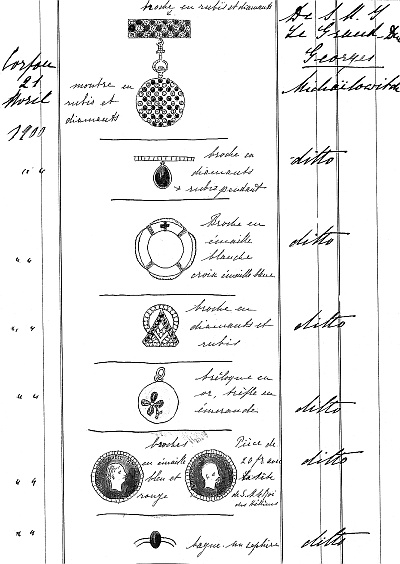 broche en rubis et diamants
De S. M. I
Le Grand-Duc
Georges
Michaïlowitch
Corfou
21
Avril
1900
montre en
rubis et
diamants
broche en
diamants
rubis pendant
ditto
" "
Broche en
émaille
blanche
croix émaille bleue
ditto
" "
broche en
diamants et
rubis
ditto
" "
brêloque en
or, trèfle en
émeraudes
ditto
" "
broches
en émaille
bleu et
rouge
Pièce de
20 fr avec
la tête
de S. M. le Roi
des Hellènes
ditto
" "
bague un saphire
ditto
" "